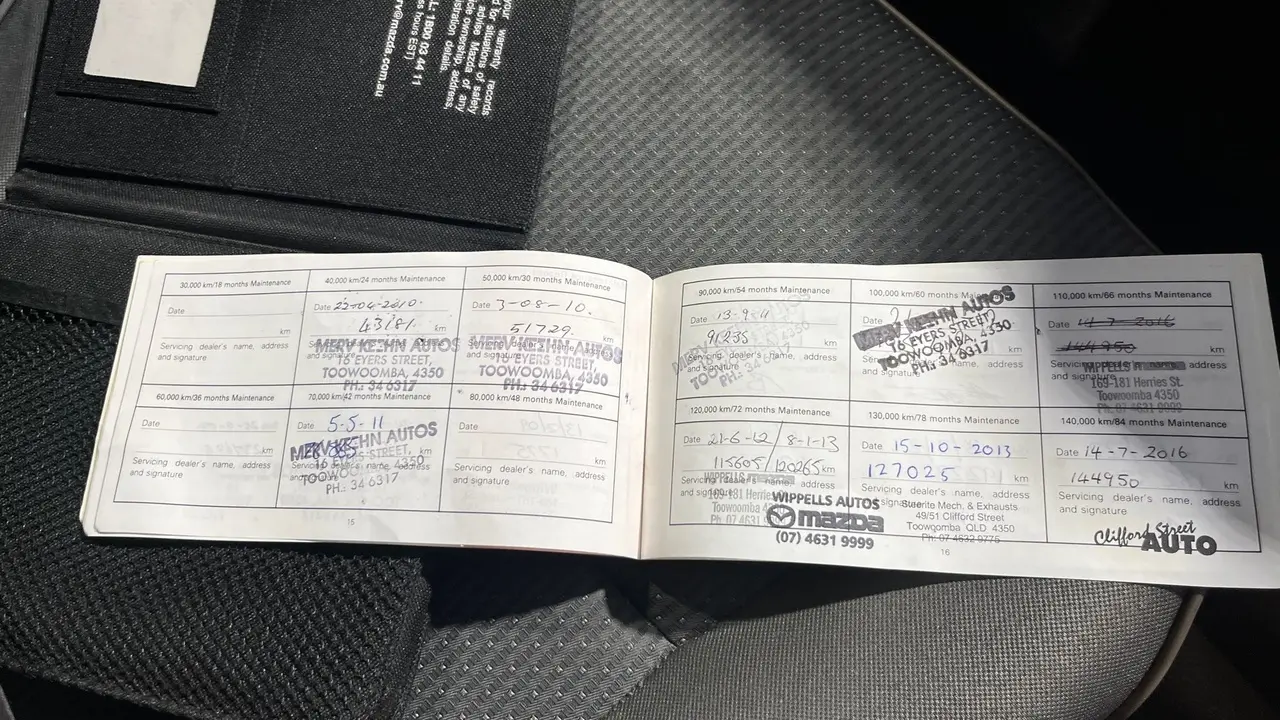 your warranty records
for situations of safety
advise Mazda of any
ownership address,
registration details.
1800 03 44 11
hours EST)
@mazda.com.au
30,000 km/18 months Maintenance
Date
km
Servicing dealer's name, address
and signature
40,000 km/24 months Maintenance
Date 22-04-2010.
43181 km
Servicing dealer's name, address
and signature
MERV KEEHN AUTOS
16 EYERS STREET,
TOOWOOMBA, 4350
PH.: 34 6317
50,000 km/30 months Maintenance
Date 3-08-10.
51729 km
and signature
MERV KEEHN AUTOS
16 EYERS STREET,
TOOWOOMBA, 4350
PH.: 34 6317
60,000 km/36 months Maintenance
Date
km
Servicing dealer's name, address
and signature
70,000 km/42 months Maintenance
Date 5-5-11
km
Servicing dealer's name, address
and signature
MERV KEEHN AUTOS
16 EYERS STREET,
TOOWOOMBA, 4350
PH.: 34 6317
80,000 km/48 months Maintenance
Date
km
Servicing dealer's name, address
and signature
15
90,000 km/54 months Maintenance
Date 13-9-11
91235 km
Servicing dealer's name, address
and signature
100,000 km/60 months Maintenance
MERV KEEHN AUTOS
16 EYERS STREET,
TOOWOOMBA, 4350
PH.: 34 6317
110,000 km/66 months Maintenance
Date 14-7-2016
144950 km
address
and signature
WIPPELLS
169-181 Herries St.
Toowoomba 4350
Ph. 07 4631 9999
120,000 km/72 months Maintenance
Date 21-6-12 / 8-1-13
115605 / 120265 km
Servicing dealer's name, address
and signature
WIPPELLS
169-181 Herries
Toowoomba
Ph. 07 4631
WIPPELLS AUTOS
mazda
(07) 4631 9999
130,000 km/78 months Maintenance
Date 15-10-2013
127025 km
Servicing dealer's name, address
and signature
Mech. & Exhausts
49/51 Clifford Street
Toowoomba QLD 4350
Ph: 07 4632 9775
140,000 km/84 months Maintenance
Date 14-7-2016
144950 km
Servicing dealer's name, address
and signature
Clifford Street
AUTO
16